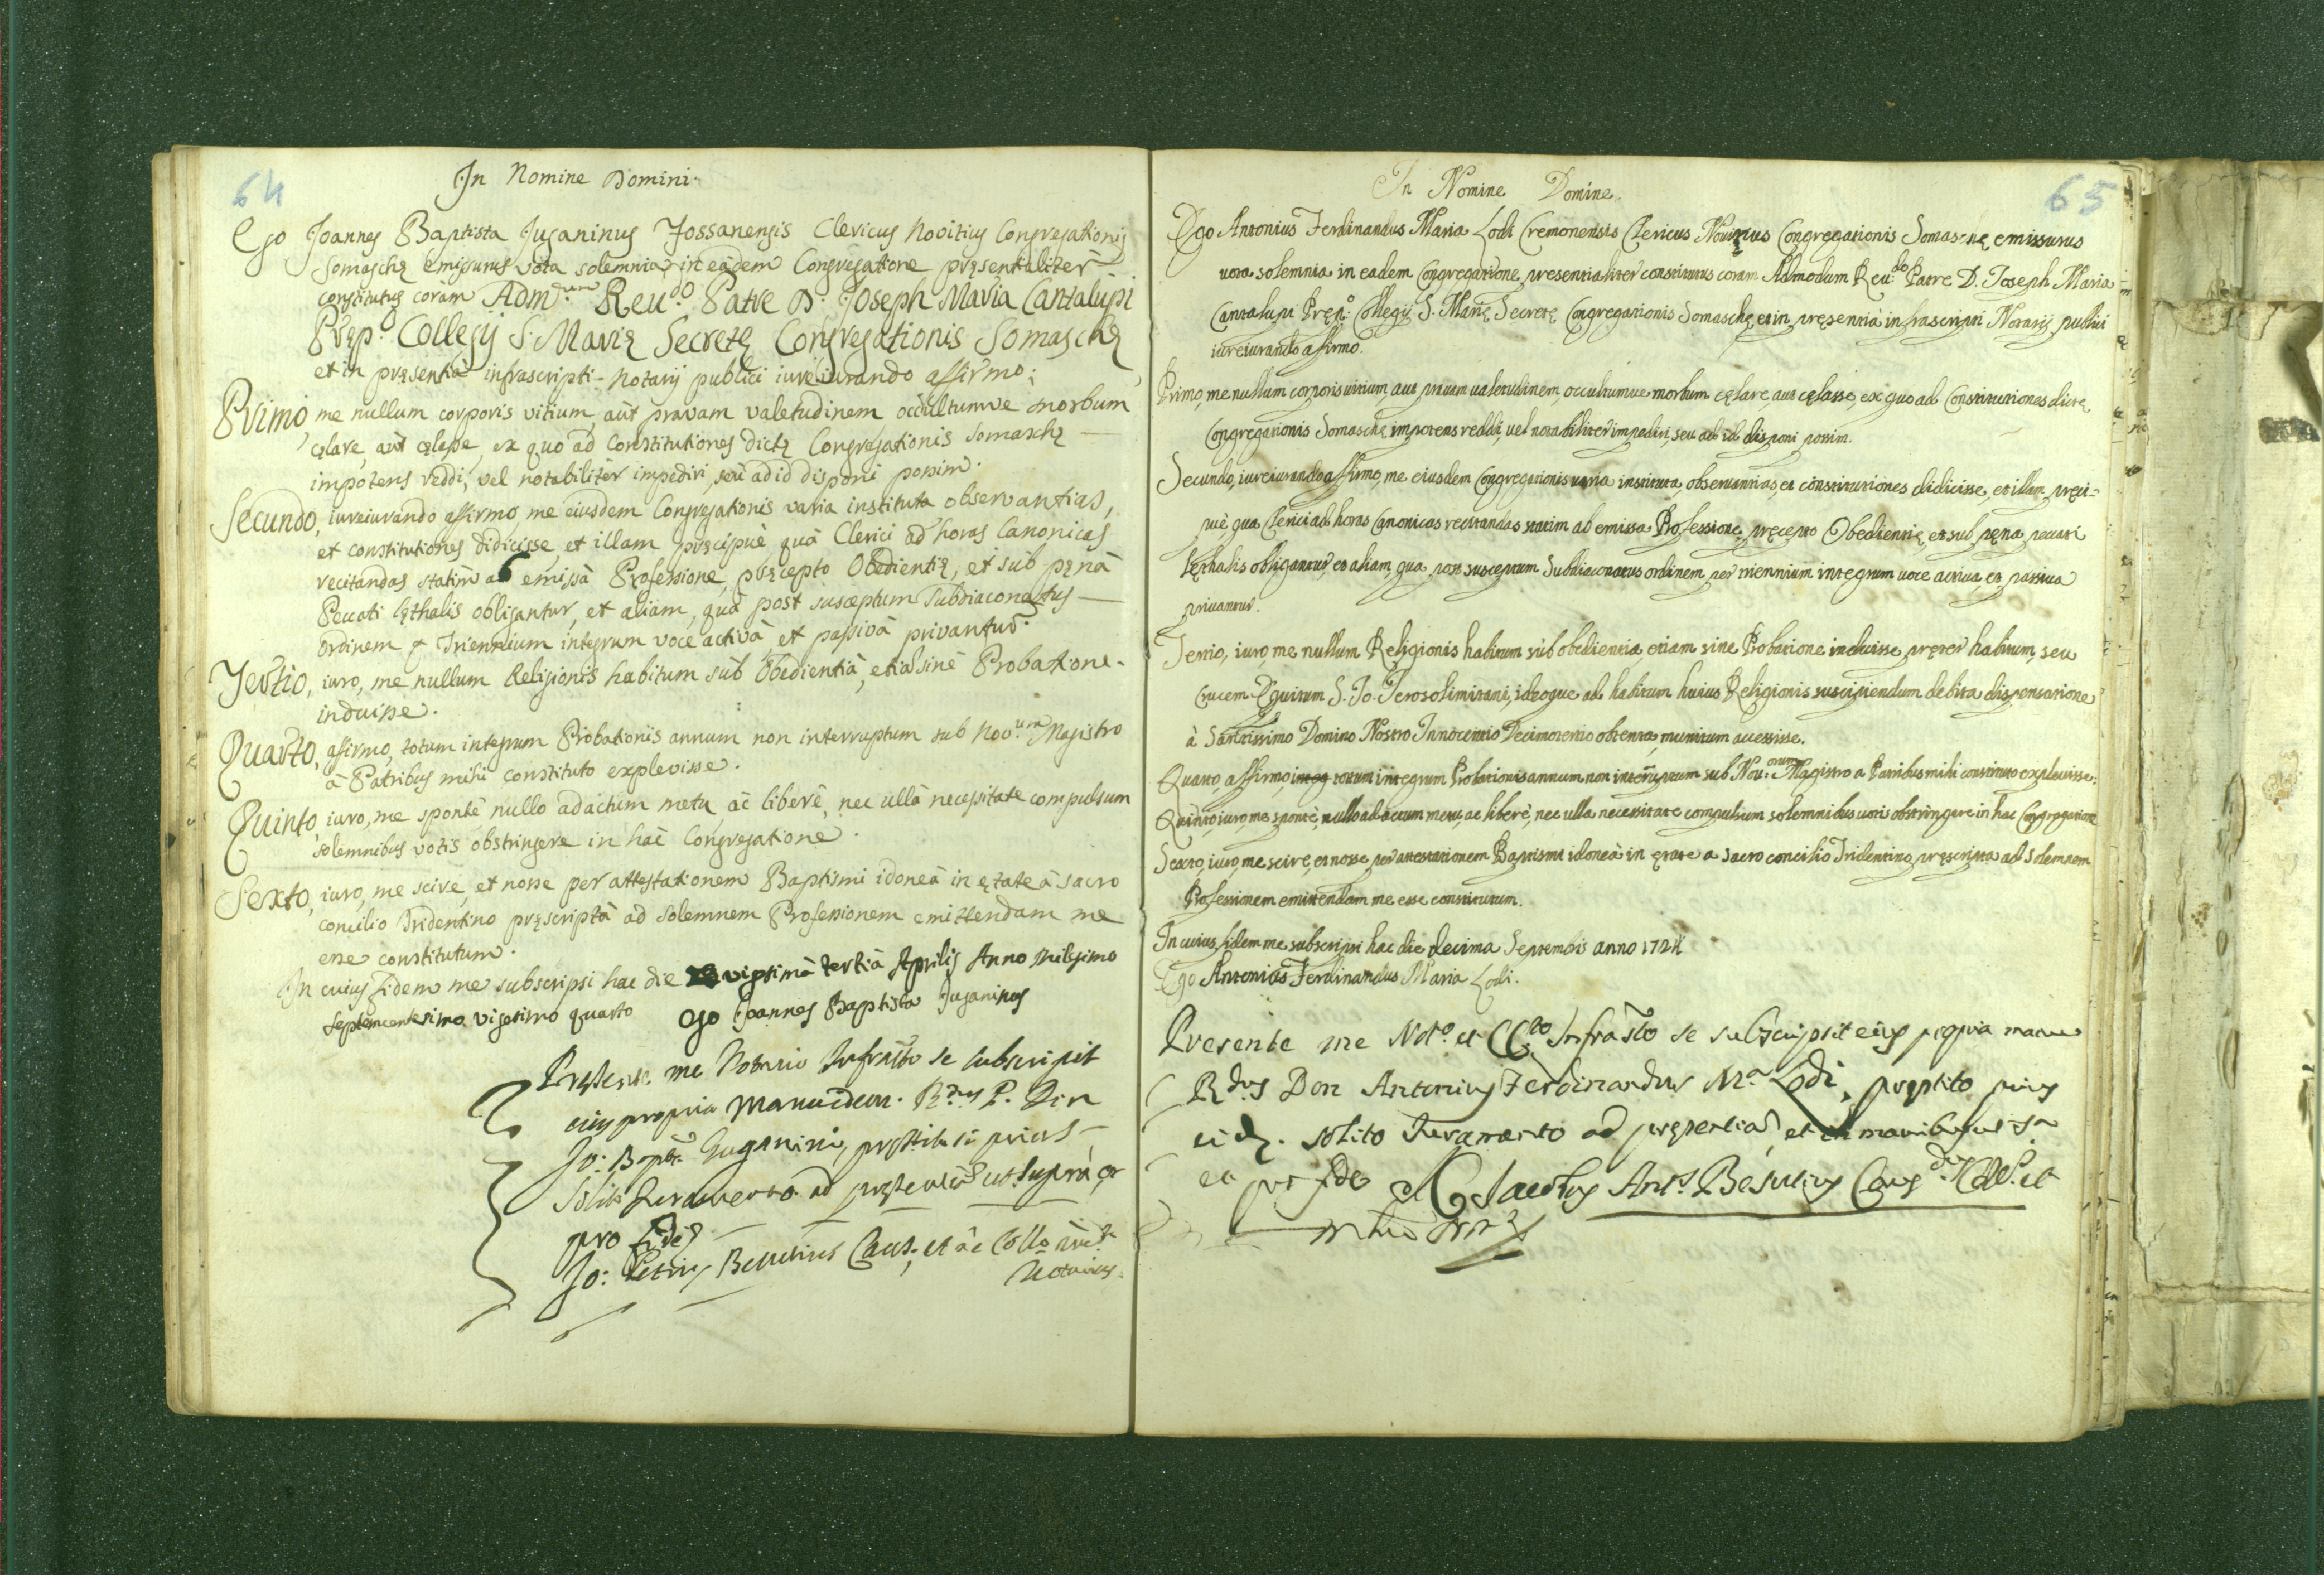 64
In Nomine Domini.
Ego Joannes Baptista Juganinus Fossanensis Clericus Novitius Congregationis
Somaschę emissurus vota solemnia in eadem Congregatione pręsentialiter
constitutus coràm Adm.dum Reu.do Patre D. Joseph Maria Cantalupi
Pręp.o Collegij S. Marię Secretę Congregationis Somaschę
et in pręsentia infrascripti Notarij publici iureiurando affirmo;
Primo, me nullum corporis vitium, aut pravam valetudinem occultumve morbum
cęlare, aut cęlasse, ex quo ad Constitutiones dictę Congregationis Somaschę
impotens reddi, vel notabiliter impediri, seu ad id disponi possim.
Secundo, iureiurando affirmo, me eiusdem Congregationis varia instituta observantias,
et constitutiones didicisse, et illam pręcipuè quà Clerici ad horas Canonicas
recitandas statim ab emissà Professione, pręcepto Obedientię, et sub pęnà
Peccati lęthalis obligantur, et aliam, quà post susceptum Subdiaconatus
ordinem p Triennium integrum voce activà, et passivà privantur.
Tertio, iuro, me nullum Religionis habitum sub Obedientià, etiā sinè Probatione
induisse.
Quarto, affirmo, totum integrum Probationis annum non interruptum sub Nov.um Magistro
à Patribus mihi constituto explevisse.
Quinto, iuro, me spontè nullo adactum metu, ac liberè, nec ullà necessitate compulsum
solemnibus votis obstringere in hac Congregatione.
Sexto, iuro, me scire, et nosse per attestationem Baptismi idoneà in ętate à sacro
concilio Tridentino pręscriptà ad solemnem Professionem emittendam me
esse constitutum.
In cuius fidem me subscripsi hac die vigesimà tertià Aprilis Anno milesimo
septemcentesimo vigesimo quarto ego Joannes Baptista Juganinus
Pręsente me Notario Infrascto se subscripsit
eius propria manu idem R.dus P. Don
Jo: Bapta Juganini, pręstito ei prius
solito Juramento ad pręsentiā ut suprà et
pro fide
Jo: Petrus Besutius Caus. et ac Coll.
Notarius.
65
In Nomine Domine.
Ego Antonius Ferdinandus Maria Lodi Cremonensis Clericus Novitius Congregationis Somaschę emissurus
vota solemnia in eadem Congregatione, presentialiter constitutus coram Admodum Reu.do Patre D. Joseph Maria
Cantalupi Pręp.o Collegij S. Marię Secretę Congregationis Somaschę, et in pręsentià infrascripti Notarij publici
iureiurando affirmo.
Primo, me nullum corporis vitium, aut pravam valetudinem, occultumve morbum cęlare, aut cęlasse, ex quo ad Constitutiones dictę
Congregationis Somaschę impotens reddi, vel notabiliter impediri, seu ad id disponi possim.
Secundo, iureiurando affirmo, me eiusdem Congregationis varia instituta, observantias, et constitutiones didicisse, et illam pręci-
puè, qua Clerici ad horas Canonicas recitandas statim ab emissa Professione, pręcepto Obedientię, et sub pęna peccati
lęthalis obligantur, et aliam, qua post susceptum Subdiaconatus ordinem per triennium integrum voce activa, et passiva
privantur.
Tertio, iuro, me nullum Religionis habitum sub obedientia, etiam sine Probatione induisse, pręter habitum, seu
crucem Equitum S. Jo. Ierosolimitani, ideoque ad habitum huius Religionis suscipiendum debita dispensatione
à Sanctissimo Domino Nostro Innocentio Decimotertio obtenta, munitum accessisse.
Quarto, affirmo, integ totum integrum Probationis annum non interruptum sub Nov.orum Magistro a Patribus mihi constituto explevisse.
Quinto, iuro, me spontè, nullo adactum metu, ac liberè, nec ulla necessitate compulsum solemnibus votis obstringere in hac Congregatione
Sexto, iuro, me scire, et nosse per attestationem Baptismi idoneà in ętate a Sacro concilio Tridentino pręscripta ad Solemnem
Professionem emittendam me esse constitutum.
In cuius fidem me subscripsi hac die decima Septembris anno 1724
Ego Antonius Ferdinandus Maria Lodi.
Presente me Not.o et Infrascto se subscripsit eius propria manu
R.dus Don Antonius Ferdinandus M.a Lodi, pręstito prius
ei solito Juramento ad pręsentiā, et in manibus
et pro fide Jacobus Ant.s Besutius Caus.